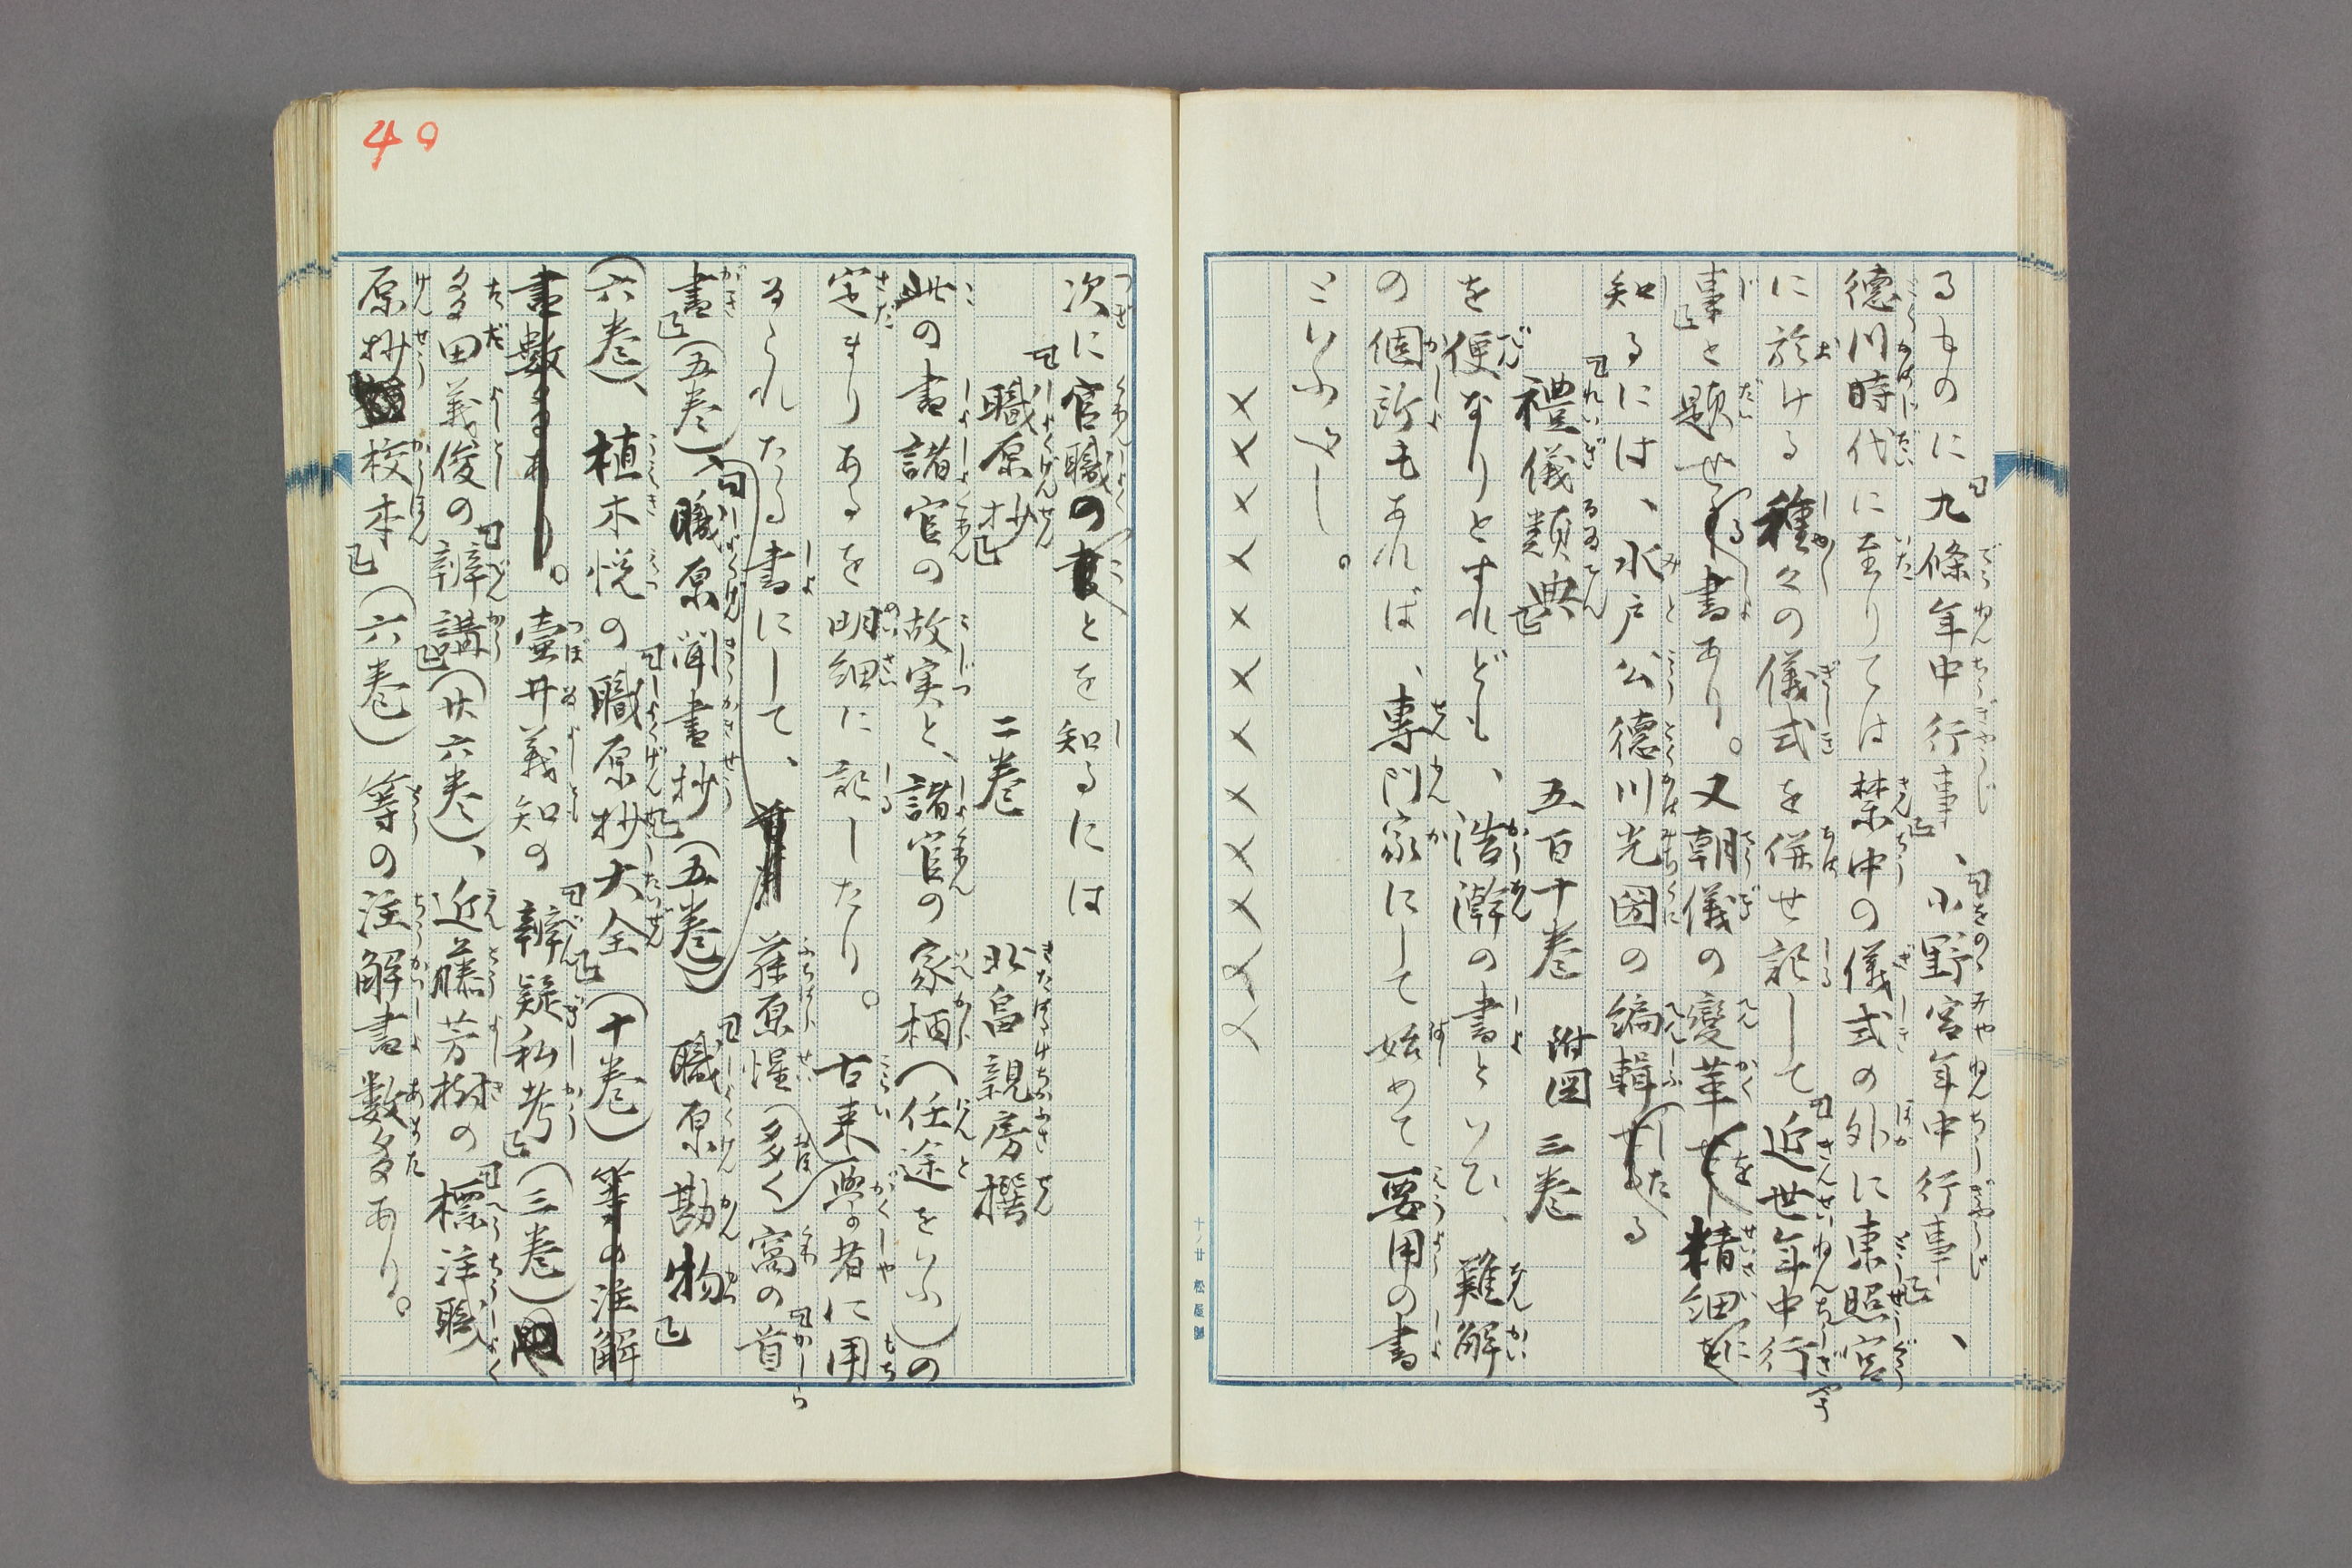 るものに『九條年中行事』、『小野宮年中行事』、
徳川時代に至りては禁中の儀式の外に東照宮
に於ける種々の儀式を併せ記して『近世年中行
事』と題せる書あり。又朝儀の變革を精細に
知るには、水戸公徳川光圀の編輯したる
『禮儀類典』 五百十巻 附図 三巻
を便なりとすれども、浩瀚の書といひ、難解
の個所もあれば、専門家にして始めて要用の書
といふべし。
××××××××××××
十ノ廿 松屋製
40
次に官職のことを知るには
『職原抄』 二巻 北畠親房撰
此の書諸官の故実と、諸官の家柄(任途をいふ)の
定まりあるを明細に記したり。古来学者に用
ゐられたる書にして、藤原惺窩の『首
書』(五巻)、『職原聞書抄』(五巻) 『職原勘物』
(六巻)、植木悦の『職原抄大全』(十巻)
壺井義知の『辨疑私考』(三巻)
多田義俊の『辨講』(廿六巻)、近藤芳樹の『標注職
原抄校本』(六巻)等の注解書数多あり。